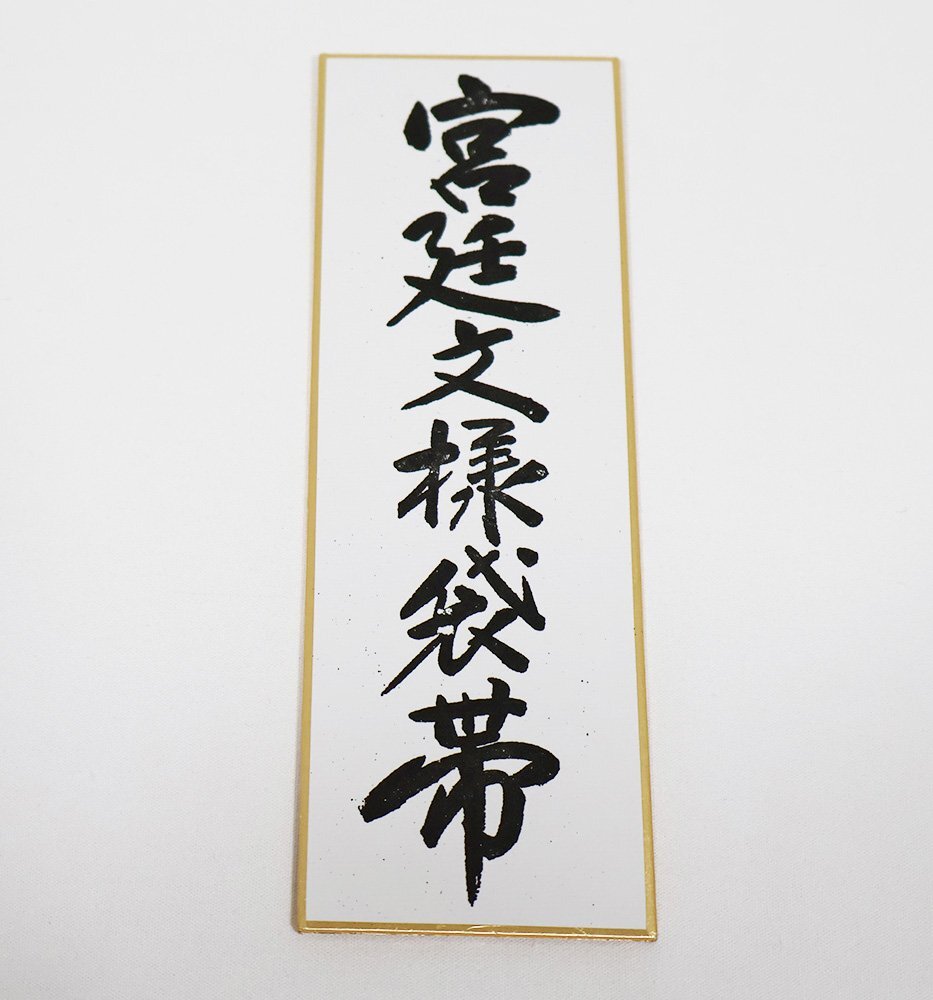 宮廷文様袋帯